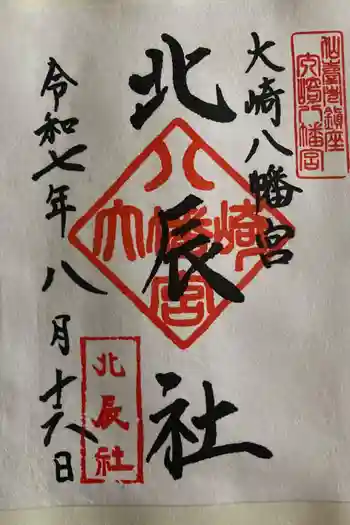 仙臺總鎮座
大崎八幡宮
大崎八幡宮
北辰社
八
大 幡 崎
宮
北辰社
令和七年八月十六日